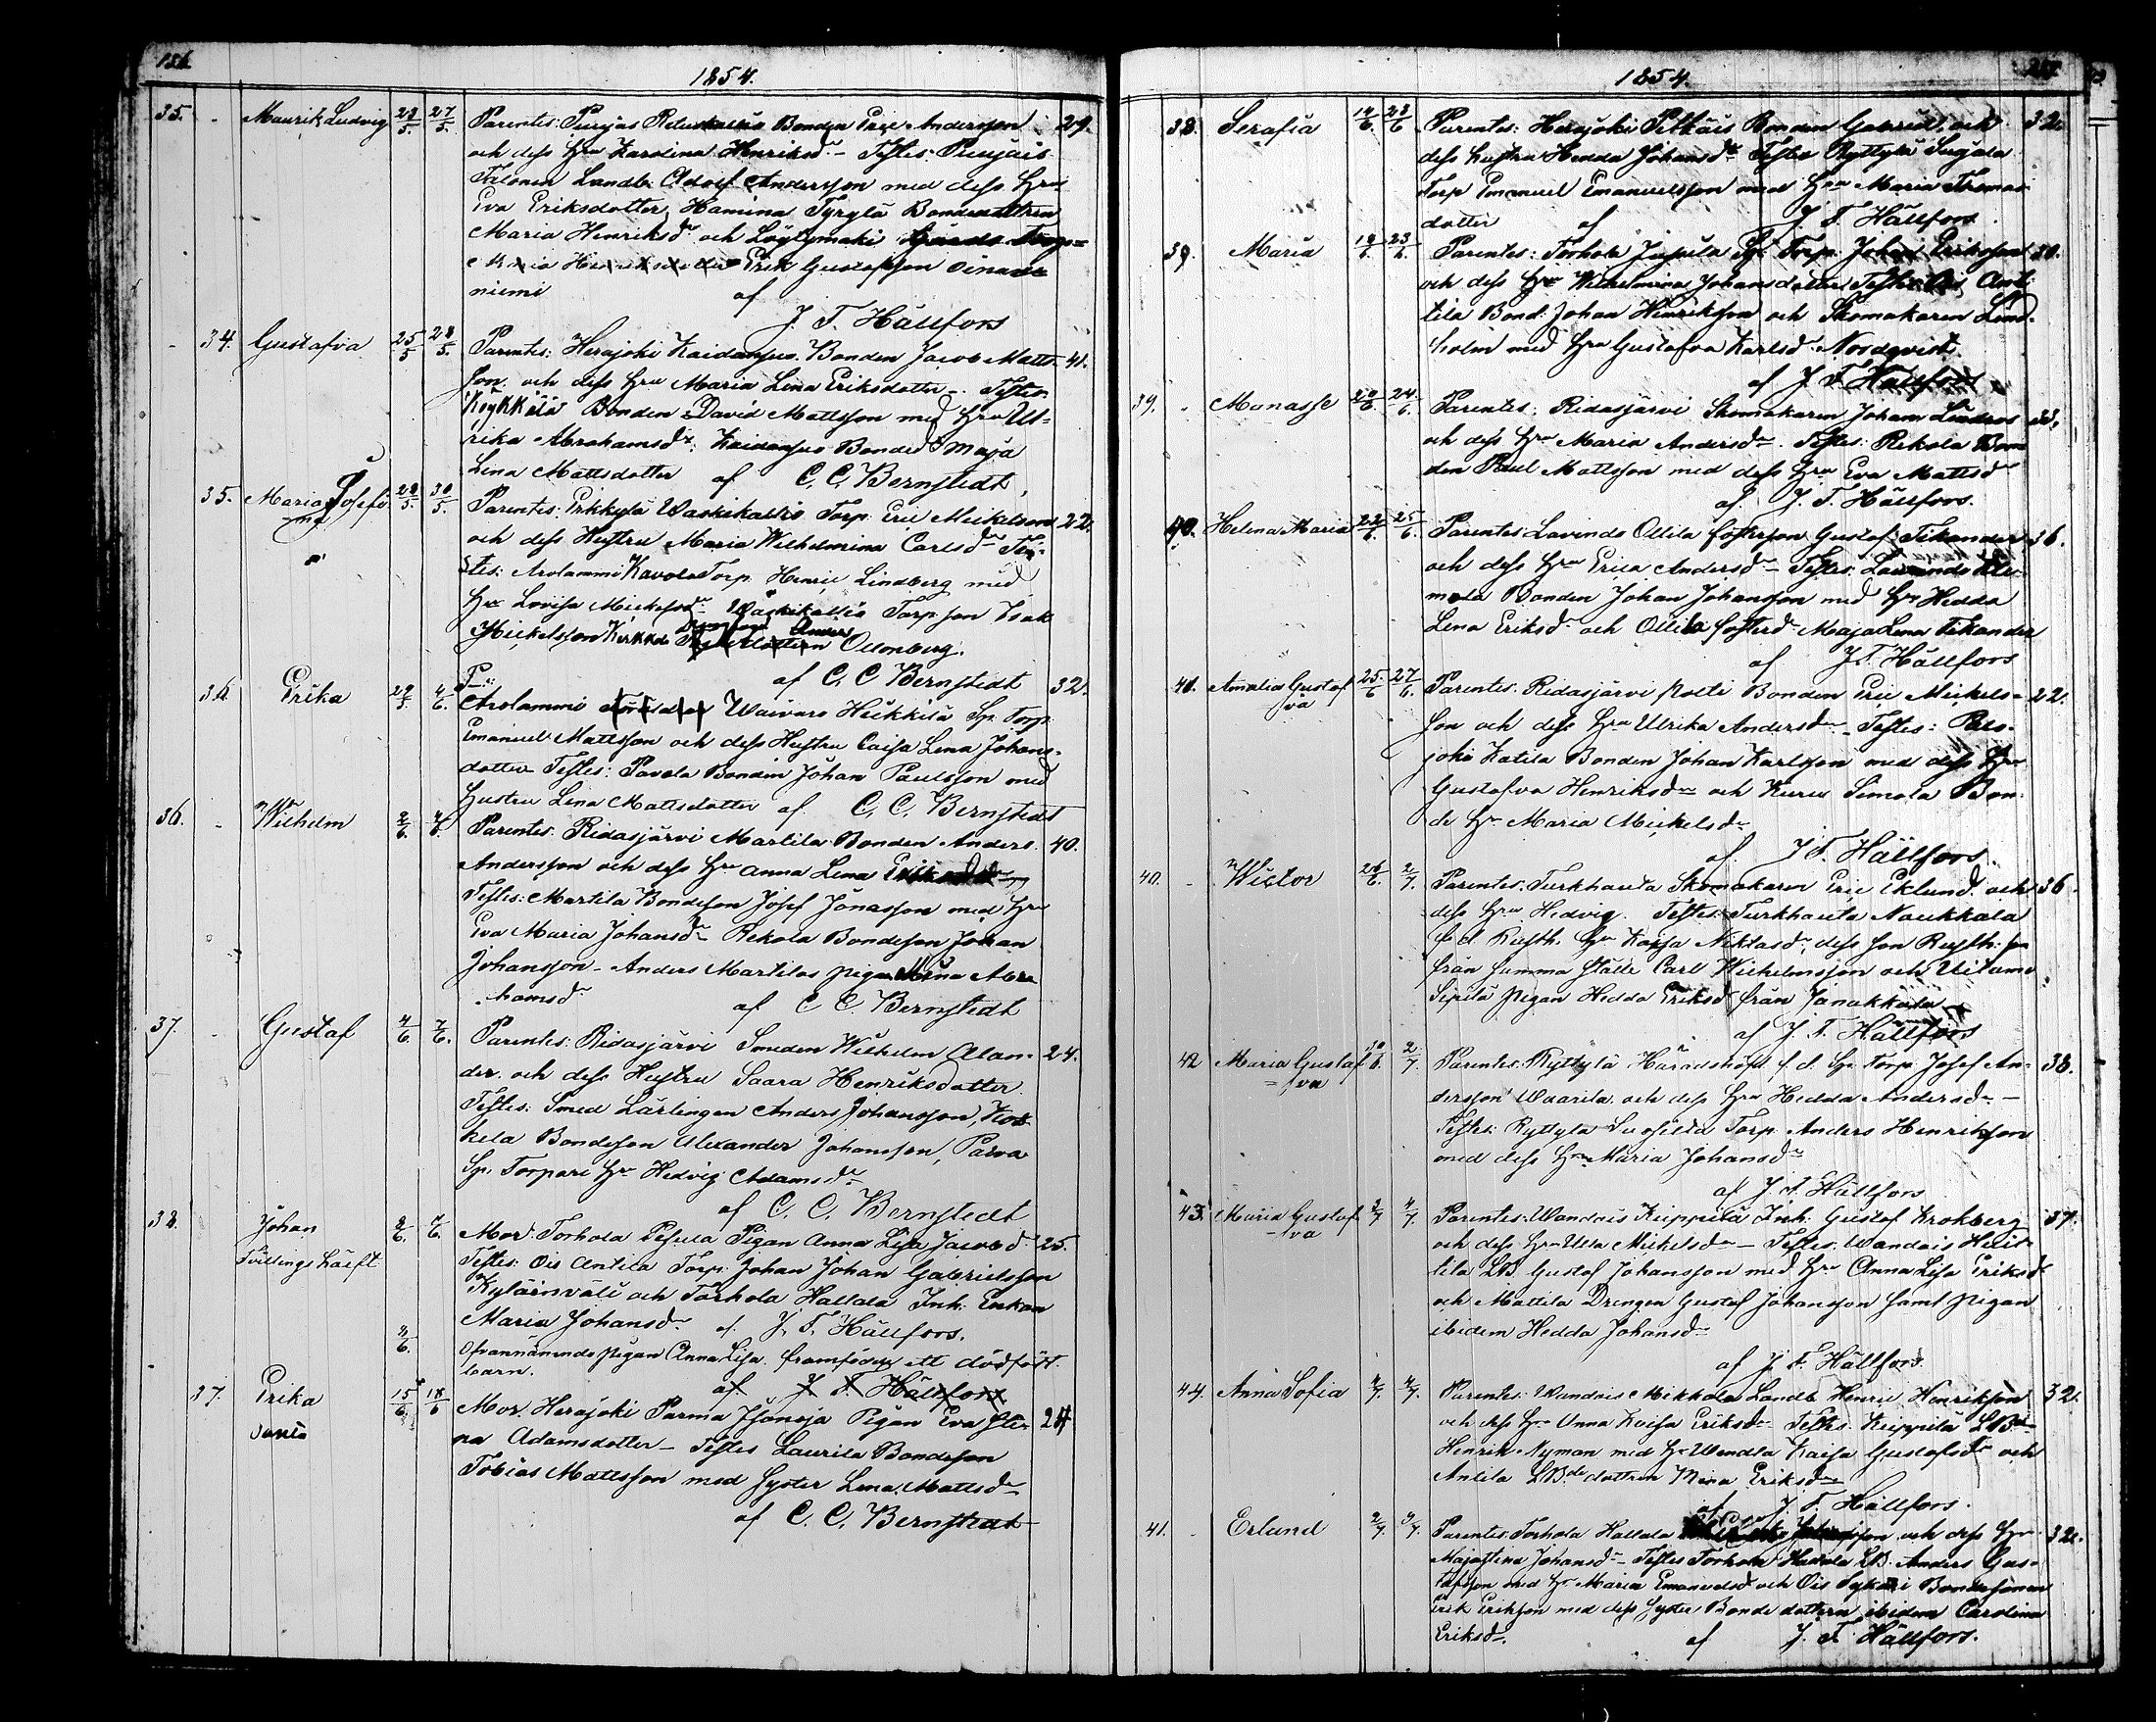 156.
1854.
35. Maurits Ludvig 23/5. 27/5. Parentes: Punjas Bonden Eric Andersson 29.
och dess Hu Karolina Henriksdr – Testes: Punjais
Talonen Landb. Adolf Andersson med dess Hu
Eva Eriksdotter, Hamina Tyrylä Bondedottren
Maria Henriksdr och Löytymäki
Erik Gustafsson Oinas
niemi af
J. F. Hällfors
34. Gustafva 25/5 28/5. Parentes: Herajoki Kaidanpää Bonden Jacob Matts- 41.
son och dess Hru Maria Lena Eriksdotter. Testes:
Köykkälä Bonden David Mattsson med Hru Ul-
rika Abrahamsdr. Kaidanpää Bonded. Maja
Lena Mattsdotter af C. C. Bernstedt,
35. Maria Josefi- 28/5. 30/5. Parentes: Erkkylä Waskikallio Torp. Eric Mickelsson 22.
na och dess Hustru Maria Wilhelmina Carlsdr Tes-
tes: Arolammi Kavola Torp. Henric Lindberg med
Hu Lovisa Mickelsdr. Waskikallio Torp. son Isak
Mickelsson Kirkko Ollonberg.
af C. C. Bernstedt
36. Erika 29/5. 4/6. P–: 32.
Arolammi Waivaro Heikkilä Sp. Torp.
Emanuel Mattsson och dess Hustru Caisa Lena Johans-
dotter Testes: Pavola Bonden Johan Paulsson med
Hustru Lena Mattsdotter af C. C. Bernstedt
36. Wilhelm 2/6. 4/6. Parentes: Ridasjärvi Martila Bonden Anders 40.
Andersson och dess Hu Anna Lena Eriksdr
Testes: Martila Bondeson Josef Jonasson med Hru
Eva Maria Johansdr Rekola Bondeson Johan
Johansson – Anders Martilas pigan Mina Abra-
hamsdr af C. C. Bernstedt
37. Gustaf 4/6. 7/6. Parentes: Ridasjärvi Smeden Wilhelm Alan- 24.
der och dess Hustru Saara Henriksdotter.
Testes: Smed Lärlingen Anders Johansson, Kos-
kela Bondeson Alexander Johansson, Parva
Sp. Torpare Hu Hedvig Adamsdr
af C. C. Bernstedt
38. Johan 2/6. 4/6. Mor: Torhola Pesula Pigan Anna Lisa Jacobsd. 25.
Tvillings käift Testes: Ois Antila Torp. Johan Johan Gabrielsson
Kyläinväli och Torhola Hallala Inh. Enkan
Maria Johansdr af J. F. Hällfors.
2/6. Ofvannämnde pigan Anna Lisa framfödde ett dödfödt
barn.
af J. F. Hällfors
37. Erika 15/6. 18/6 Mor. Herajoki Parma Pigan Eva Sti- 24
na Adamsdotter – Testes Laurila Bondeson
Tobias Mattsson med Syster Lena Mattsdr
af C. C. Bernstedt
1854.
38. Serafia 14/6. 23/6 Parentes: Herajoki Pitkäis Bonden Gabriel och 32.
dess hustru Hedda Johansdr Testes Ryttylä Suojala
Torp. Emanuel Emanuelsson med Hru Maria Thomas
dotter af J. F. Hällfors
39. Maria 19/6. 23/6. Parentes: Torhola Torp. Johan Eriksson 30.
och dess Hu Wilhelmina Johansdotter Testes: Ois Ant-
tila Bond. Johan Henriksson och Skomakaren Lind-
holm med Hru Gustafva Karlsd. Nordqvist.
af J. F. Hällfors
39. Manasse 20/6. 24/6. Parentes: Ridasjärvi Skomakaren Johan Lindros 33.
och dess Hru Maria Andersdr. Testes: Rekola Bon
den Paul Mattsson med dess Hru Eva Mattsdr
af J. F. Hällfors.
40. Helena Maria 22/6. 25/6. Parentes Lavindo Ollila fosterson Gustaf Tikander 36.
och dess Hru Erica Andersdr Testes: Lavindo
mola Bonden Johan Johansson med Hru Hedda
Lena Eriksdr och Ollila fosterdr Maja Lena Tikander
af J. F. Hällfors
41. Amalia Gustaf 25/6 27/6. Parentes. Ridasjärvi Bonden Eric Mickels- 22.
va son och dess Hru Ulrika Andersdr Testes: Palo-
joki Katila Bonden Johan Karlsson med dess Hru
Gustafva Henriksdr och Kuru Simola Bon-
de Hu Maria Mickelsdr
af J. F. Hällfors.
40. Wictor 26/6. 2/7. Parentes. Turkhauta Skomakaren Eric Eklund och 36.
dess Hru Hedvig. Testes: Turkhauta Naukkala
f. d. Rusth. Hu Kajsa Niklasdr, dess son Rusth. son
från samma ställe Carl Wilhelmsson och Uitamo
Sipilä pigan Hedda Eriksd. från Janakkala
af J. F. Hällfors
42 Maria Gustaf 30/6. 2/7. Parentes. Ryttylä Häradshöfd. f. d. Sp. Torp. Josef An- 38.
=va dersson Waarila och dess Hru Hedda Andersdr –
Testes: Ryttylä Torp. Anders Henriksson
med dess Hru Maria Johansdr
af J. F. Hällfors
43. Maria Gustaf 2/7 4/7. Parentes: Wandais Keippilä Inh. Gustaf Krokberg 37.
–va och dess Hru Ulla Mickelsdr – Testes. Wandais Heit-
tila LB. Gustaf Johansson med Hru Anna Lisa Eriksdr
och Mattila Drengen Gustaf Johansson samt pigan
ibidem Hedda Johansdr
af J. F. Hällfors
44. Anna Sofia 2/7. 4/7. Parentes: Wandais Mikkola Landb Henric Henriksson 32.
och dess Hu Anna Kaisa Eriksdr Testes. Keippilä LBde
Henrik Nyman med Hu Wendla Kaisa Gustafsdr och
Antila LBde dottren Mina Eriksdr
af J. F. Hällfors.
41. Erland 2/7. 9/7. Parentes: Torhola Hallala och dess Hu 32.
Majastina Johansdr – Testes Torhola Hallala LB. Anders Gus-
tafsson med Hu Maria Emanuelsd och Ois Sykäri Bondesonen
Erik Eriksson med dess Syster Bonde dottren ibidem Carolina
Eriksdr. af J. F. Hällfors.